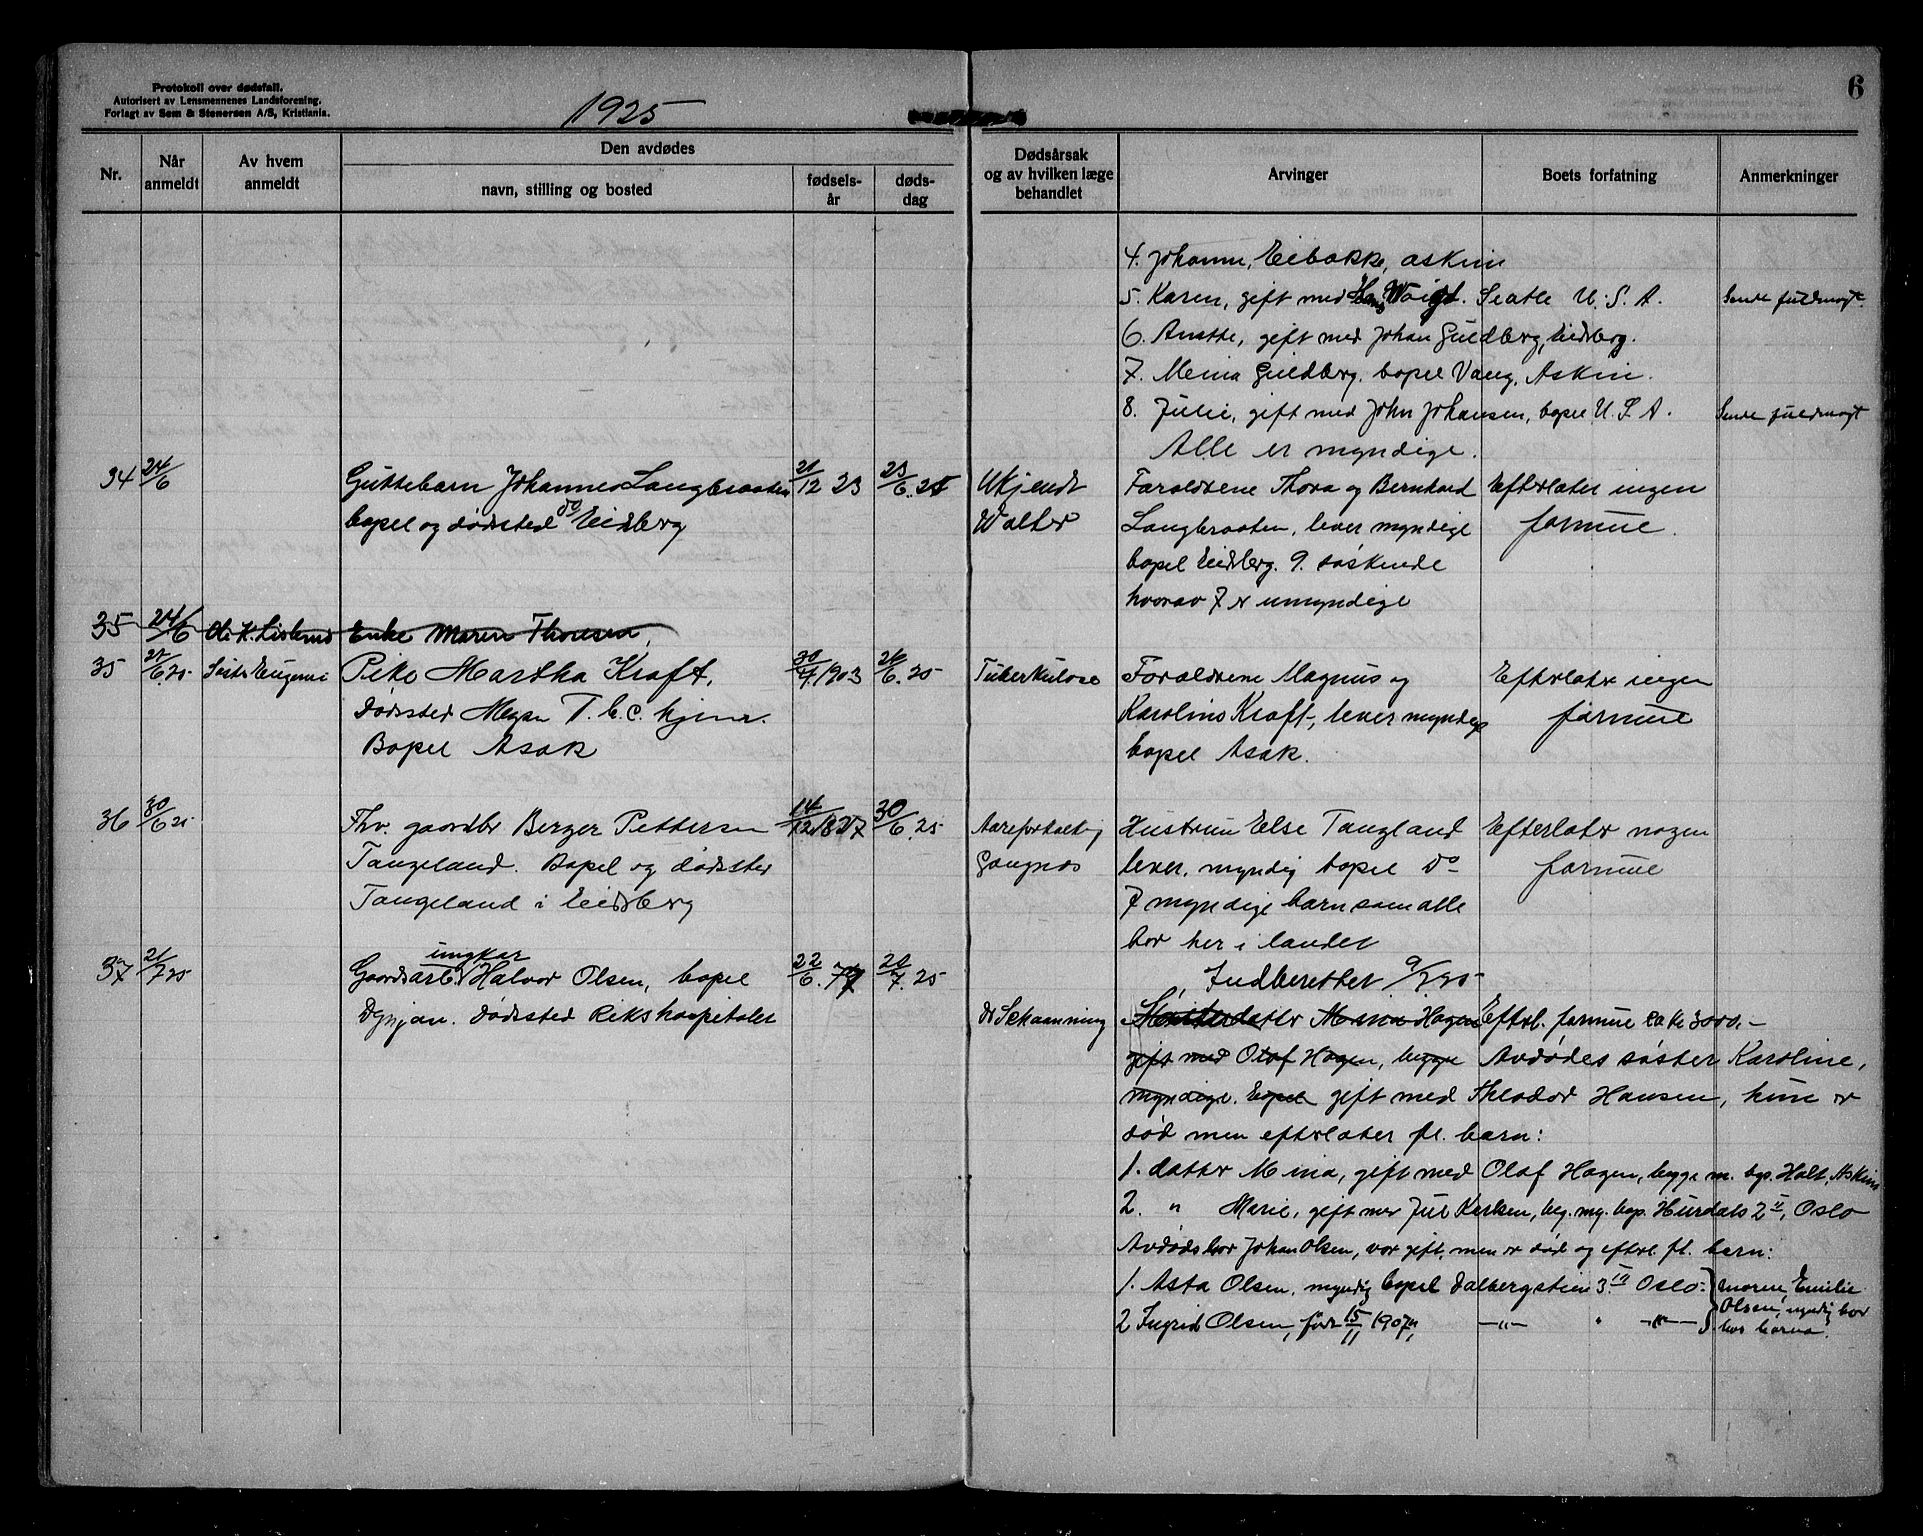 Protokoll over dødsfall.
Autorisert av Lensmennenes Landsforening.
Forlagt av Sem & Stenersen A/S, Kristiania.
1925
6
Nr.
Når anmeldt
Av hvem anmeldt
Den avdødes
navn, stilling og bosted
fødsels-år
døds-dag
Dødsårsak og av hvilken læge behandlet
Arvinger
Boets forfatning
Anmerkninger
4. Johanne, Eibakke, Askim
5. Karen, gift med Voigt. Seatle U.S.A. Sende fuldmagt.
6. Anette, gift med Johan Guldberg, Eidsberg.
7. Meina Guldberg, bopel Vang, Askim.
8. Julie, gift med John Johansen, bopel U.S.A. Sende fuldmagt
Alle er myndige.
34 24/6 Guttebarn Johannes Langbraaten 21/12 23 23/6. 25 Ukjendt Foreldrene Thora og Bernhard Efterlater ingen
bopel og dødssted do Eidsberg Walter Langbraaten, lever myndige formue.
bopel Eidsberg. 9. søskende
hvorav 7 er umyndige
35 24/6 Enke Maren Thoresen,
35 6.25 Pike Martha Kraft, 1903 26/6. 25 Tuberkulose Foreldrene Magnus og Efterlater ingen
Dødssted Mysen T.b.c. hjem. Karoline Kraft, lever myndige formue
Bopel Asak bopel Asak.
36 30/6 25 Fhv. gaardbr Berger Pettersen 14/12 1827 30/6. 25 Aareforkalkning Hustruen Else Tangland Efterlater nogen
Tangeland. Bopel og dødssted Gangnes lever, myndig bopel do formue
Tangeland i Eidsberg 7 myndige barn som alle
bor her i landet
ungkar
37 21/7 25 Gaardsarb. Halvor Olsen, bopel 22/6. 20/7. 25 Indberettet
dødssted Rikshospitalet dr Schanning datter Mina Hagen Efterl. formue ca kr 3000.-
gift med Olaf Hagen, begge Avdødes søster Karoline,
myndige. Bopel gift med Theodor Hansen, hun er
død men efterlater fl. barn:
1. datter Mina, gift med Olaf Hagen, begge m. bop. Holt, Askim
2. " Marie, gift med Jul Karlsen, beg. my. bop. Hurdals 2 II, Oslo
Avdødes bror Johan Olsen, var gift, men er død og efterl. fl. barn:
1. Asta Olsen, myndig bopel Dalbergstien 3. IV Oslo. moren, Emilie
Olsen, myndig bor
2 Ingrid Olsen, født 15/11 1907, —"— " —"— hos barna.